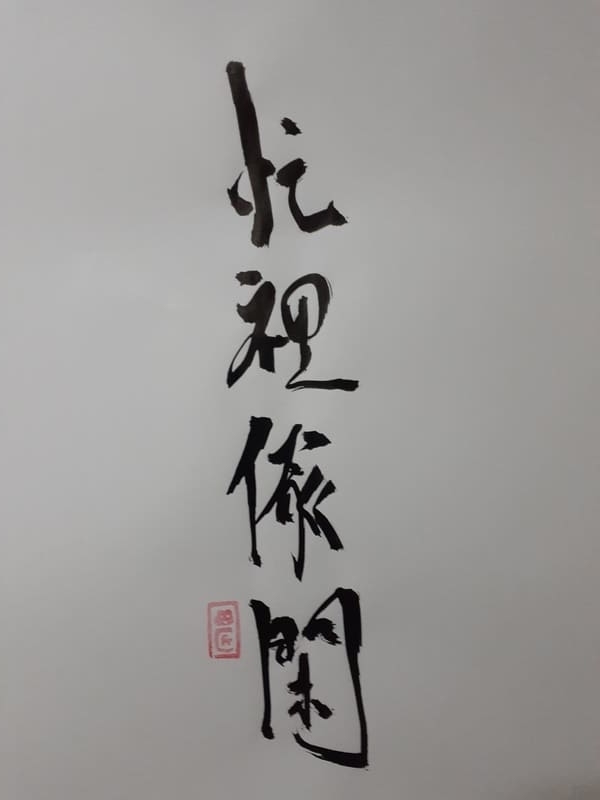 忙裡偷閑